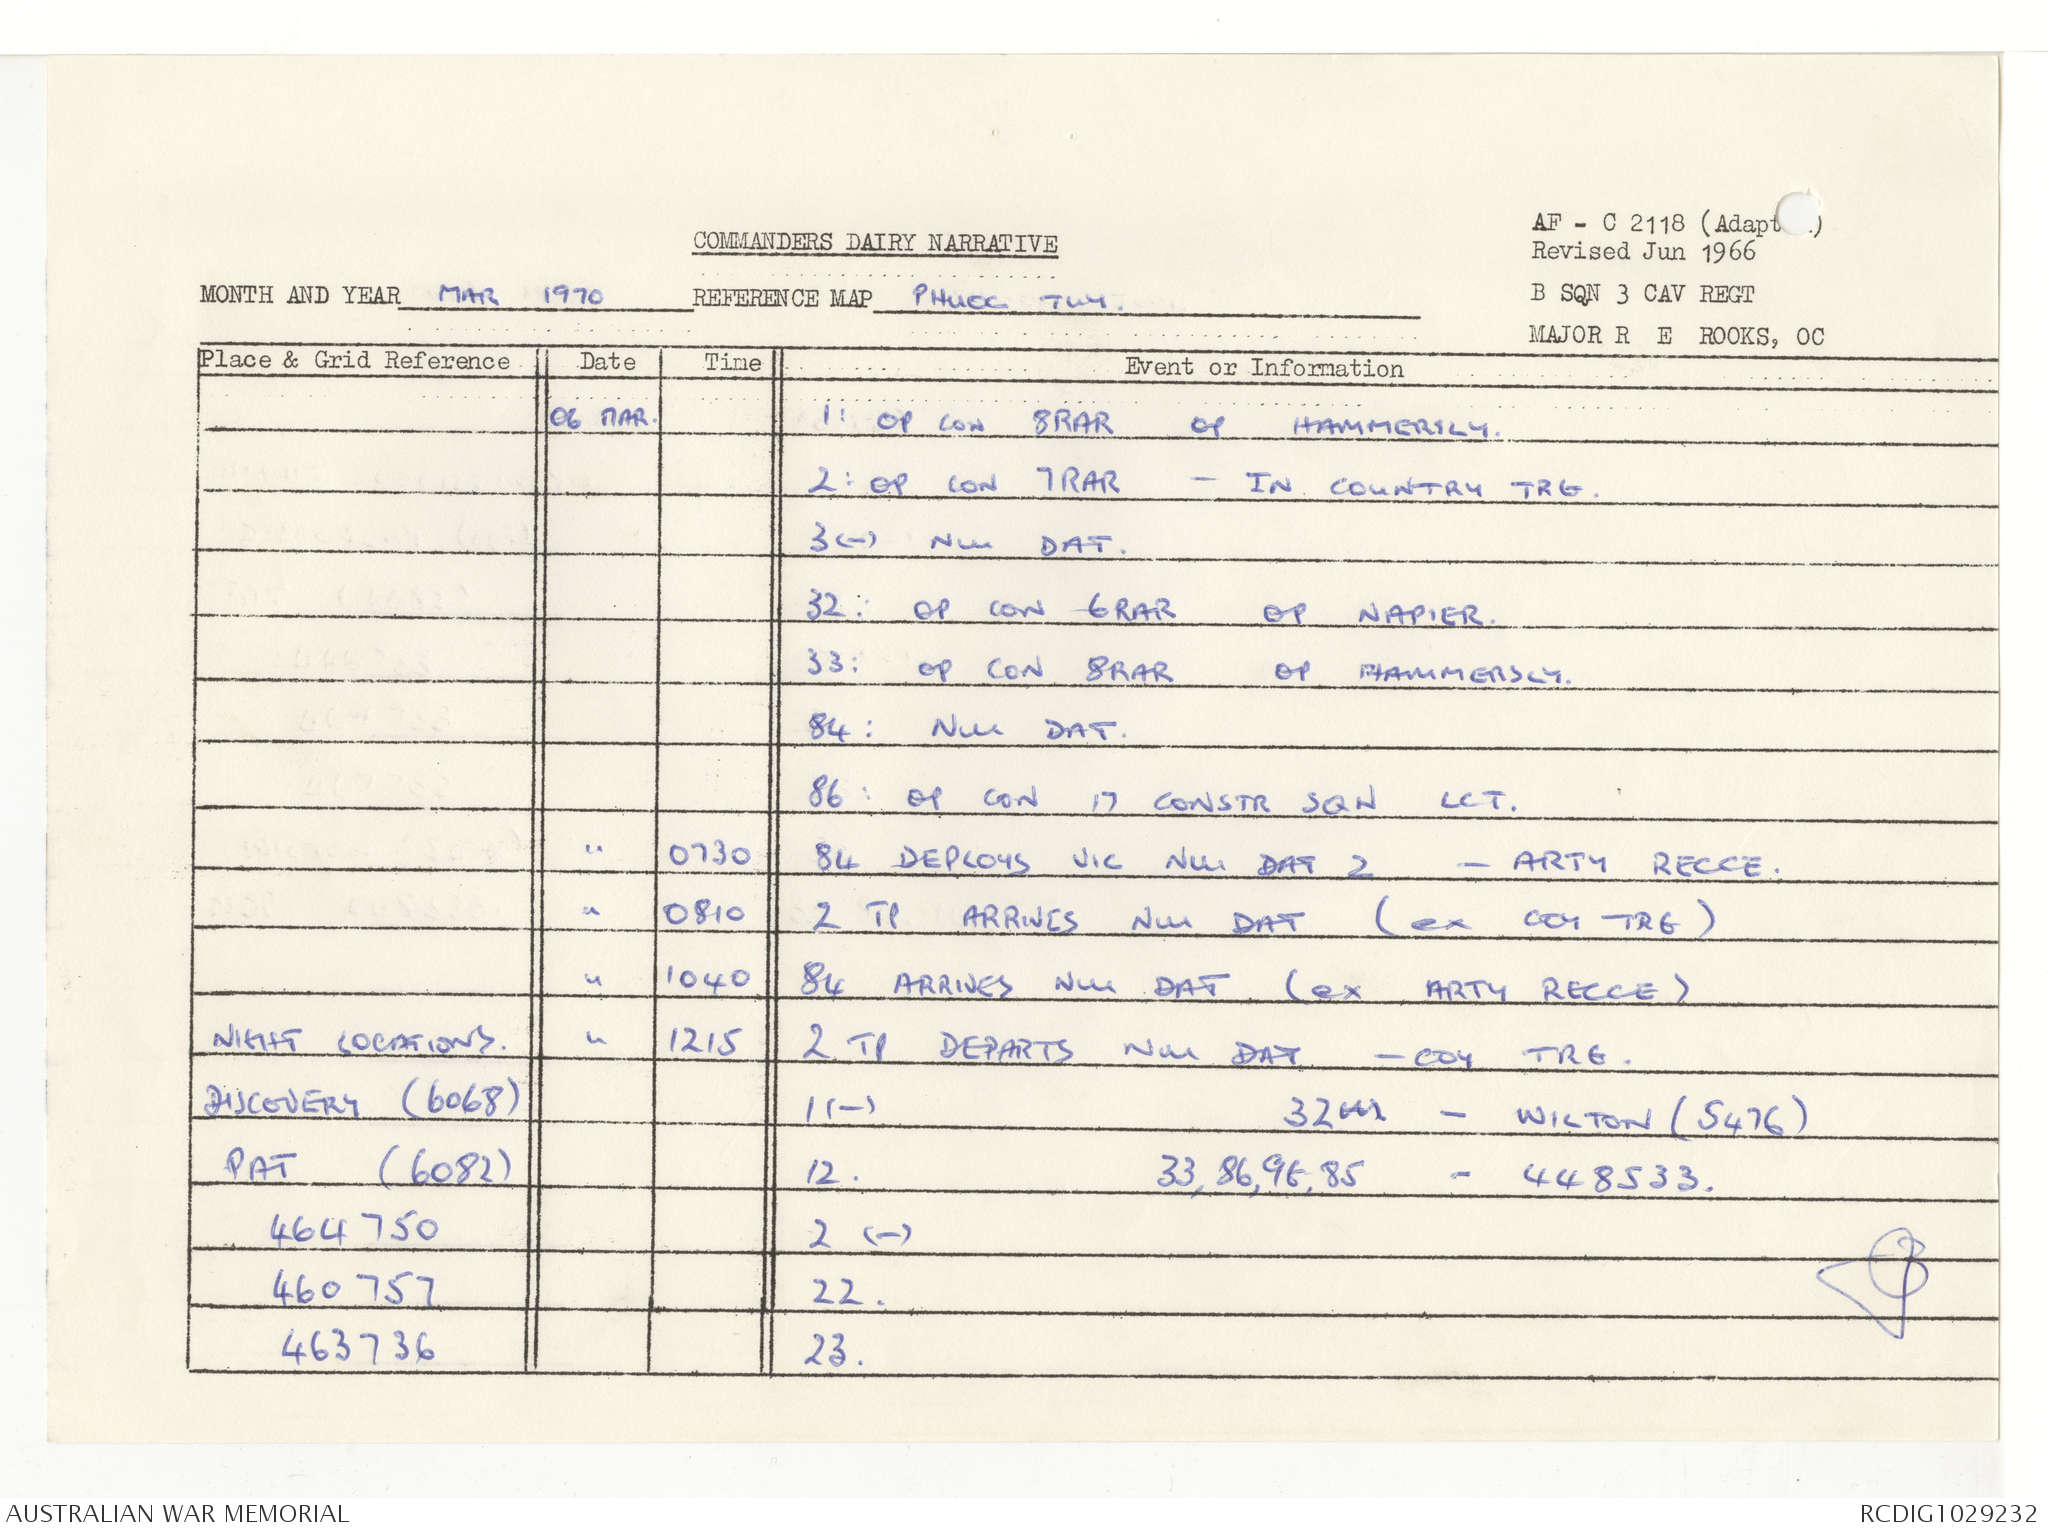 AF - C 2118 (Adapt
COMMANDERS DAIRY NARRATIVE
Revised Jun 1966
MONTH AND YEAR MAR 1970 REFERENCE MAP PHUOC TUY.
B SQN 3 CAV REGT
MAJOR R E ROOKS, OC
Place & Grid Reference Date Time Event or Information
06 MAR. 1: OP CON 8RAR OP HAMMERSLY.
2: OP CON 7RAR - IN COUNTRY TRG.
3(-) NUI DAT.
32: OP CON 6RAR OP NAPIER.
33: OP CON 8RAR OP HAMMERSLY.
84: NUI DAT.
86: OP CON 17 CONSTR SQN LCT.
" 0730 84 DEPLOYS VIC NUI DAT 2 - ARTY RECCE.
" 0810 2 TP ARRIVES NUI DAT (ex COY TRG)
" 1040 84 ARRIVES NUI DAT (ex ARTY RECCE)
NIGHT LOCATIONS. " 1215 2 TP DEPARTS NUI DAT - COY TRG.
DISCOVERY (6068) 1(-) 32 - WILTON (5476)
PAT (6082) 12. 33, 86, 9E, 85 - 448533.
464750 2 (-)
460757 22.
463736 23.
AUSTRALIAN WAR MEMORIAL RCDIG1029232